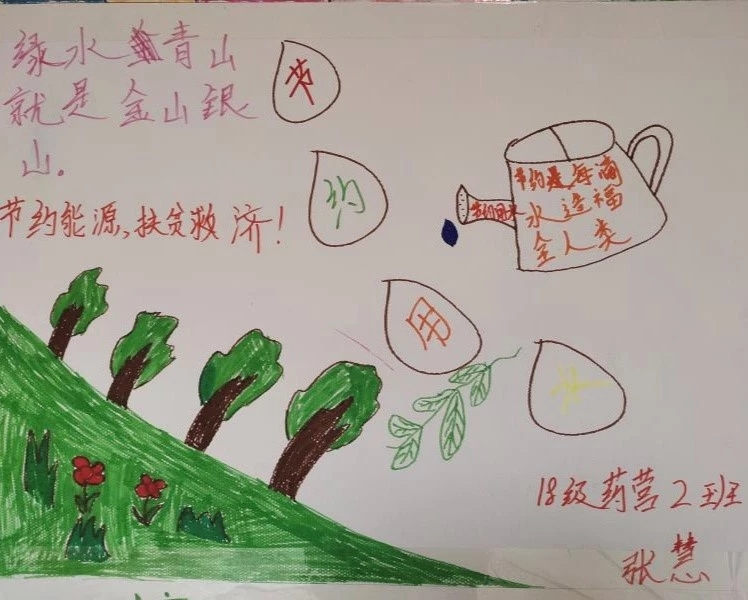 绿水青山
就是金山银
山.
节
约
用
水
节约能源、扶贫救济！
节约每滴
水造福
全人类
节约用水
18级药营2班
张慧